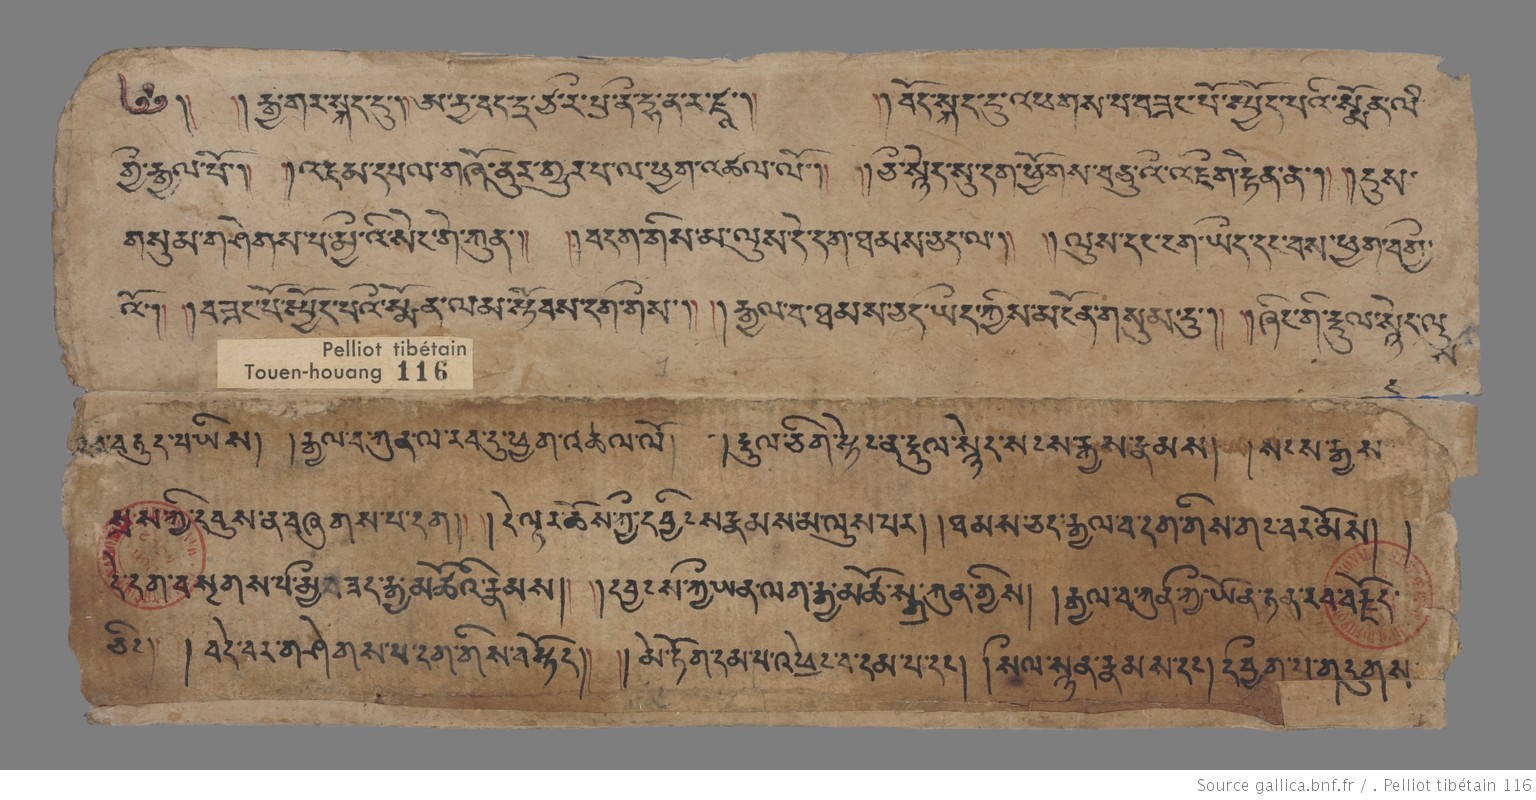 ༄༅། །རྒྱ་གར་སྐད་དུ༎ ཨ་རྱ་བད་དྲ་ཙ་རི་པྲ་ནི་དྷ་ན་ར་ཛ༎ །བོད་སྐད་དུ་འཕགས་པ་བཟང་པོ་སྤྱོད་པའི་སྨོན་ལམ
གྱི་རྒྱལ་པོ༎ །འཇམ་དཔལ་གཞོ་ནུར་གྱུར་པ་ལ་ཕྱག་འཚལ་ལོ༎ །ཇི་སྙེད་སུ་དག་ཕྱོགས་བཅུའི་འཇིག་རྟེན་ན༎ །དུས་
གསུམ་གཤེགས་པ་མྱི་འི་སེང་གེ་ཀུན༎ །བདག་གིས་མ་ལུས་དེ་དག་ཐམས་ཅད་ལ༎ །ལུས་དང་ངག་ཡིད་དང་བས་ཕྱག་བགྱི་
འོ༎ །བཟང་པོ་སྤྱོད་པའི་སྨོན་ལམ་སྟོབས་དག་གིས༎ །རྒྱལ་བ་ཐམས་ཅད་ཡིད་ཀྱིས་མངོན་གསུམ་དུ༎ །ཞིང་གི་རྡུལ་སྙེད་ལུས
Pelliot tibétain
Touen-houang 116
རབ་བཏུད་པ་ཡིས། །རྒྱལ་བ་ཀུན་ལ་རབ་དུ་ཕྱག་འཚལ་ལོ། །རྡུལ་ཅིག་སྟེང་ན་རྡུལ་སྙེད་སངས་རྒྱས་རྣམས། །སངས་རྒྱས་
སྲས་ཀྱི་དབུས་ན་བཞུགས་པ་དག། །དེ་ལྟར་ཆོས་ཀྱི་དབྱིངས་རྣམས་མ་ལུས་པར། །ཐམས་ཅད་རྒྱལ་བ་དག་གིས་གང་བར་མོས། །
དེ་དག་བསྔགས་པ་མྱི་བཟད་རྒྱ་མཚོའི་རྣམས། །དབྱངས་ཀྱི་ཡན་ལག་རྒྱ་མཚོ་སྒྲ་ཀུན་གྱིས། །རྒྱལ་བ་ཀུན་གྱི་ཡོན་ཏན་རབ་བརྗོད་
ཅིང་། །བདེ་བར་གཤེགས་པ་དག་གིས་བསྟོད། །མེ་ཏོག་དམ་པ་འཕྲེང་བ་དམ་པ་དང་། །སིལ་སྙན་རྣམས་དང་། །བྱུག་པ་གདུགས་
Source gallica.bnf.fr / . Pelliot tibétain 116